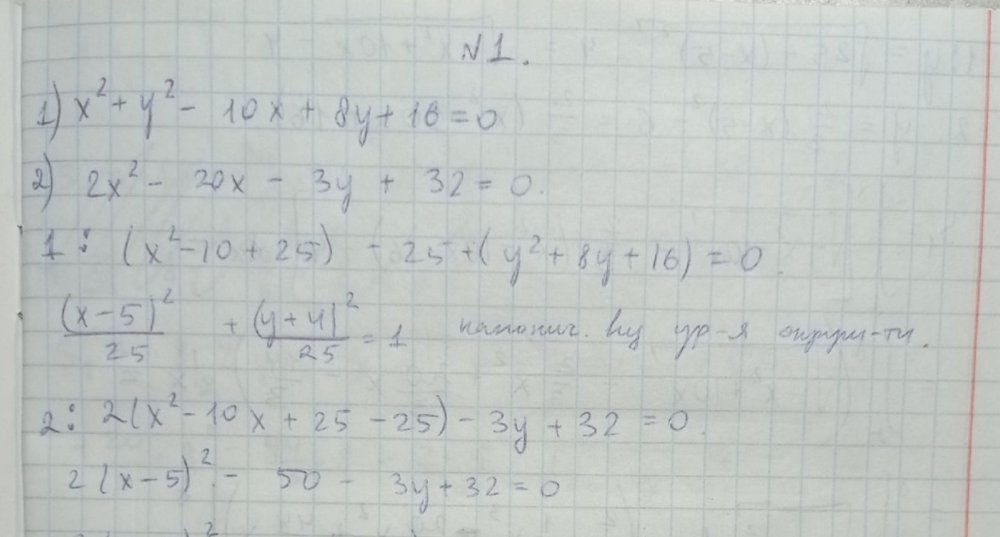 №1.
1) x² + y² - 10x + 8y + 16 = 0
2) 2x² - 20x - 3y + 32 = 0.
1: (x² - 10 + 25) - 25 + (y² + 8y + 16) = 0.
(x-5)²/25 + (y+4)²/25 = 1 канонич. ур-я окруж-ти.
2: 2(x² - 10x + 25 - 25) - 3y + 32 = 0.
2(x-5)² - 50 - 3y + 32 = 0